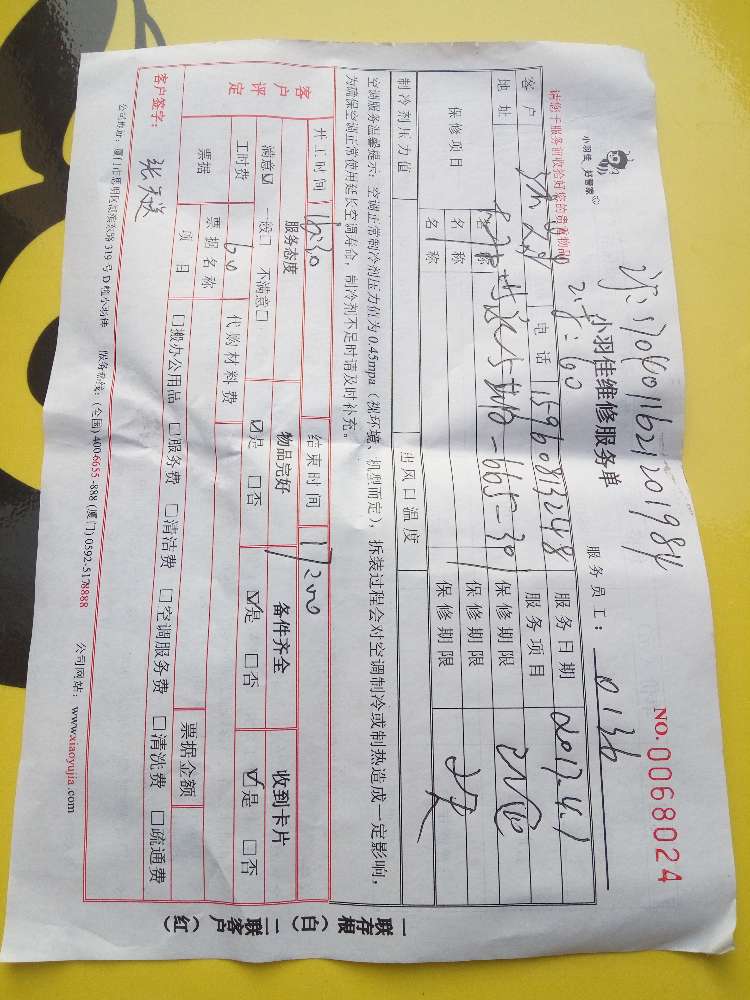 小羽佳 · 好管家
小羽佳维修服务单
NO.0068024
服务员工： 0136
请您于服务前收拾好您的贵重物品
客户 电话 15960813248 服务日期 2017.4.7
地址 服务项目
保修项目 名称 保修期限
名称 保修期限
名称 保修期限
制冷剂压力值 出风口温度
空调服务温馨提示：空调正常制冷剂压力值为0.45mpa（视环境、机型而定），拆装过程会对空调制冷或制热造成一定影响，
为确保空调正常使用延长空调寿命，制冷剂不足时请及时补充。
开工时间 16:30 结束时间 17:00
客户评定 服务态度 物品完好 备件齐全 收到卡片
满意☑ 一般□ 不满意□ ☑是 □否 ☑是 □否 ☑是 □否
工时费 60 代购材料费
票据 票据名称 票据金额
项目 □搬办公用品 □服务费 □清洁费 □空调服务费 □清洗费 □疏通费
客户签字：
服务热线：(全国) 400-6655-888 (厦门) 0592-5178888 公司网站：www.xiaoyujia.com
一联存根（白） 二联客户（红）